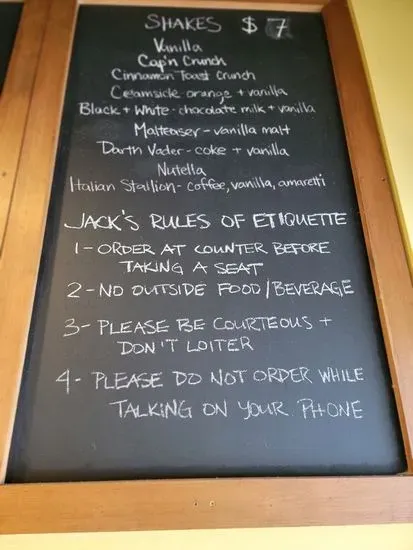 SHAKES $ 7
Vanilla
Cap'n Crunch
Cinnamon Toast Crunch
Creamsicle-orange + vanilla
Black + White-chocolate milk + vanilla
Malteaser-vanilla malt
Darth Vader-coke + vanilla
Nutella
Italian Stallion-coffee, vanilla, amaretti
JACK'S RULES OF ETIQUETTE
1-ORDER AT COUNTER BEFORE
TAKING A SEAT
2-NO OUTSIDE FOOD/BEVERAGE
3-PLEASE BE COURTEOUS +
DON'T LOITER
4-PLEASE DO NOT ORDER WHILE
TALKING ON YOUR PHONE